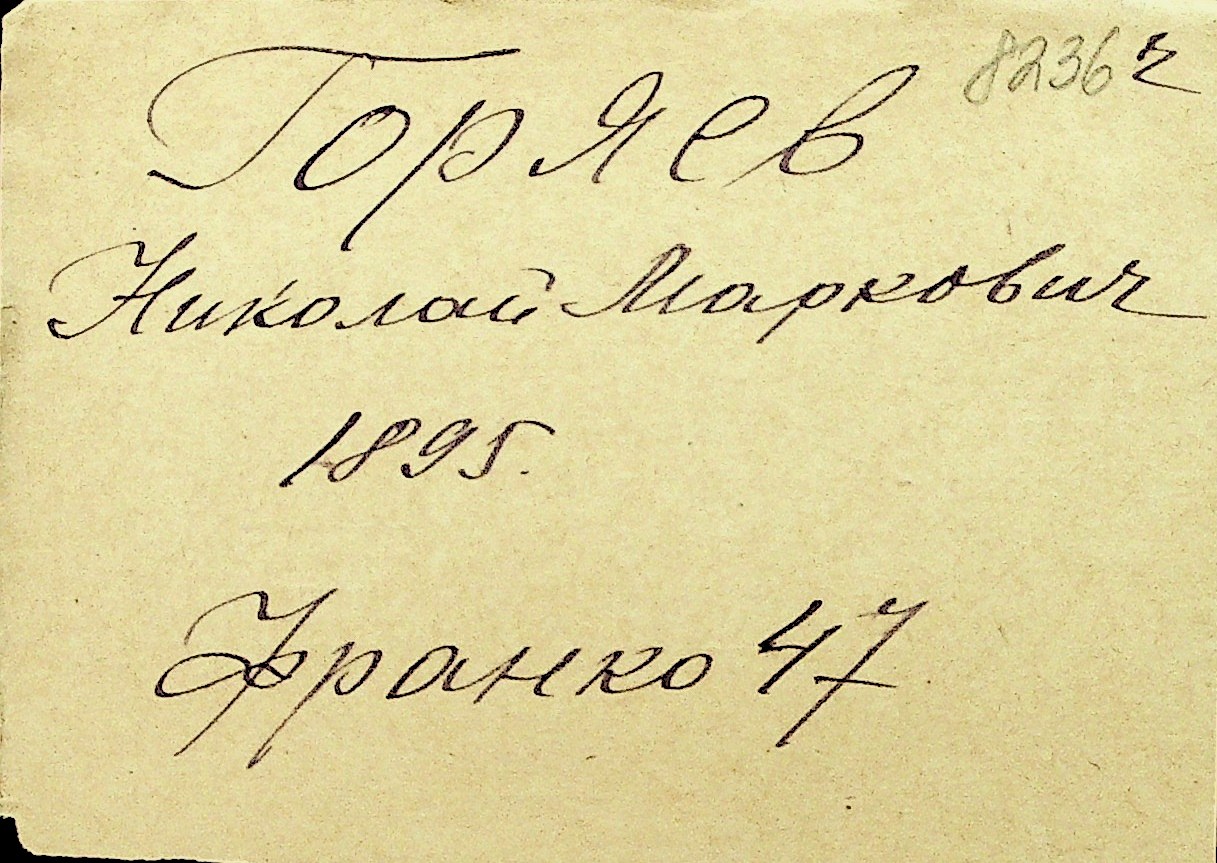 8236 ч
Горяев
Николай Маркович
1895.
Франко 47